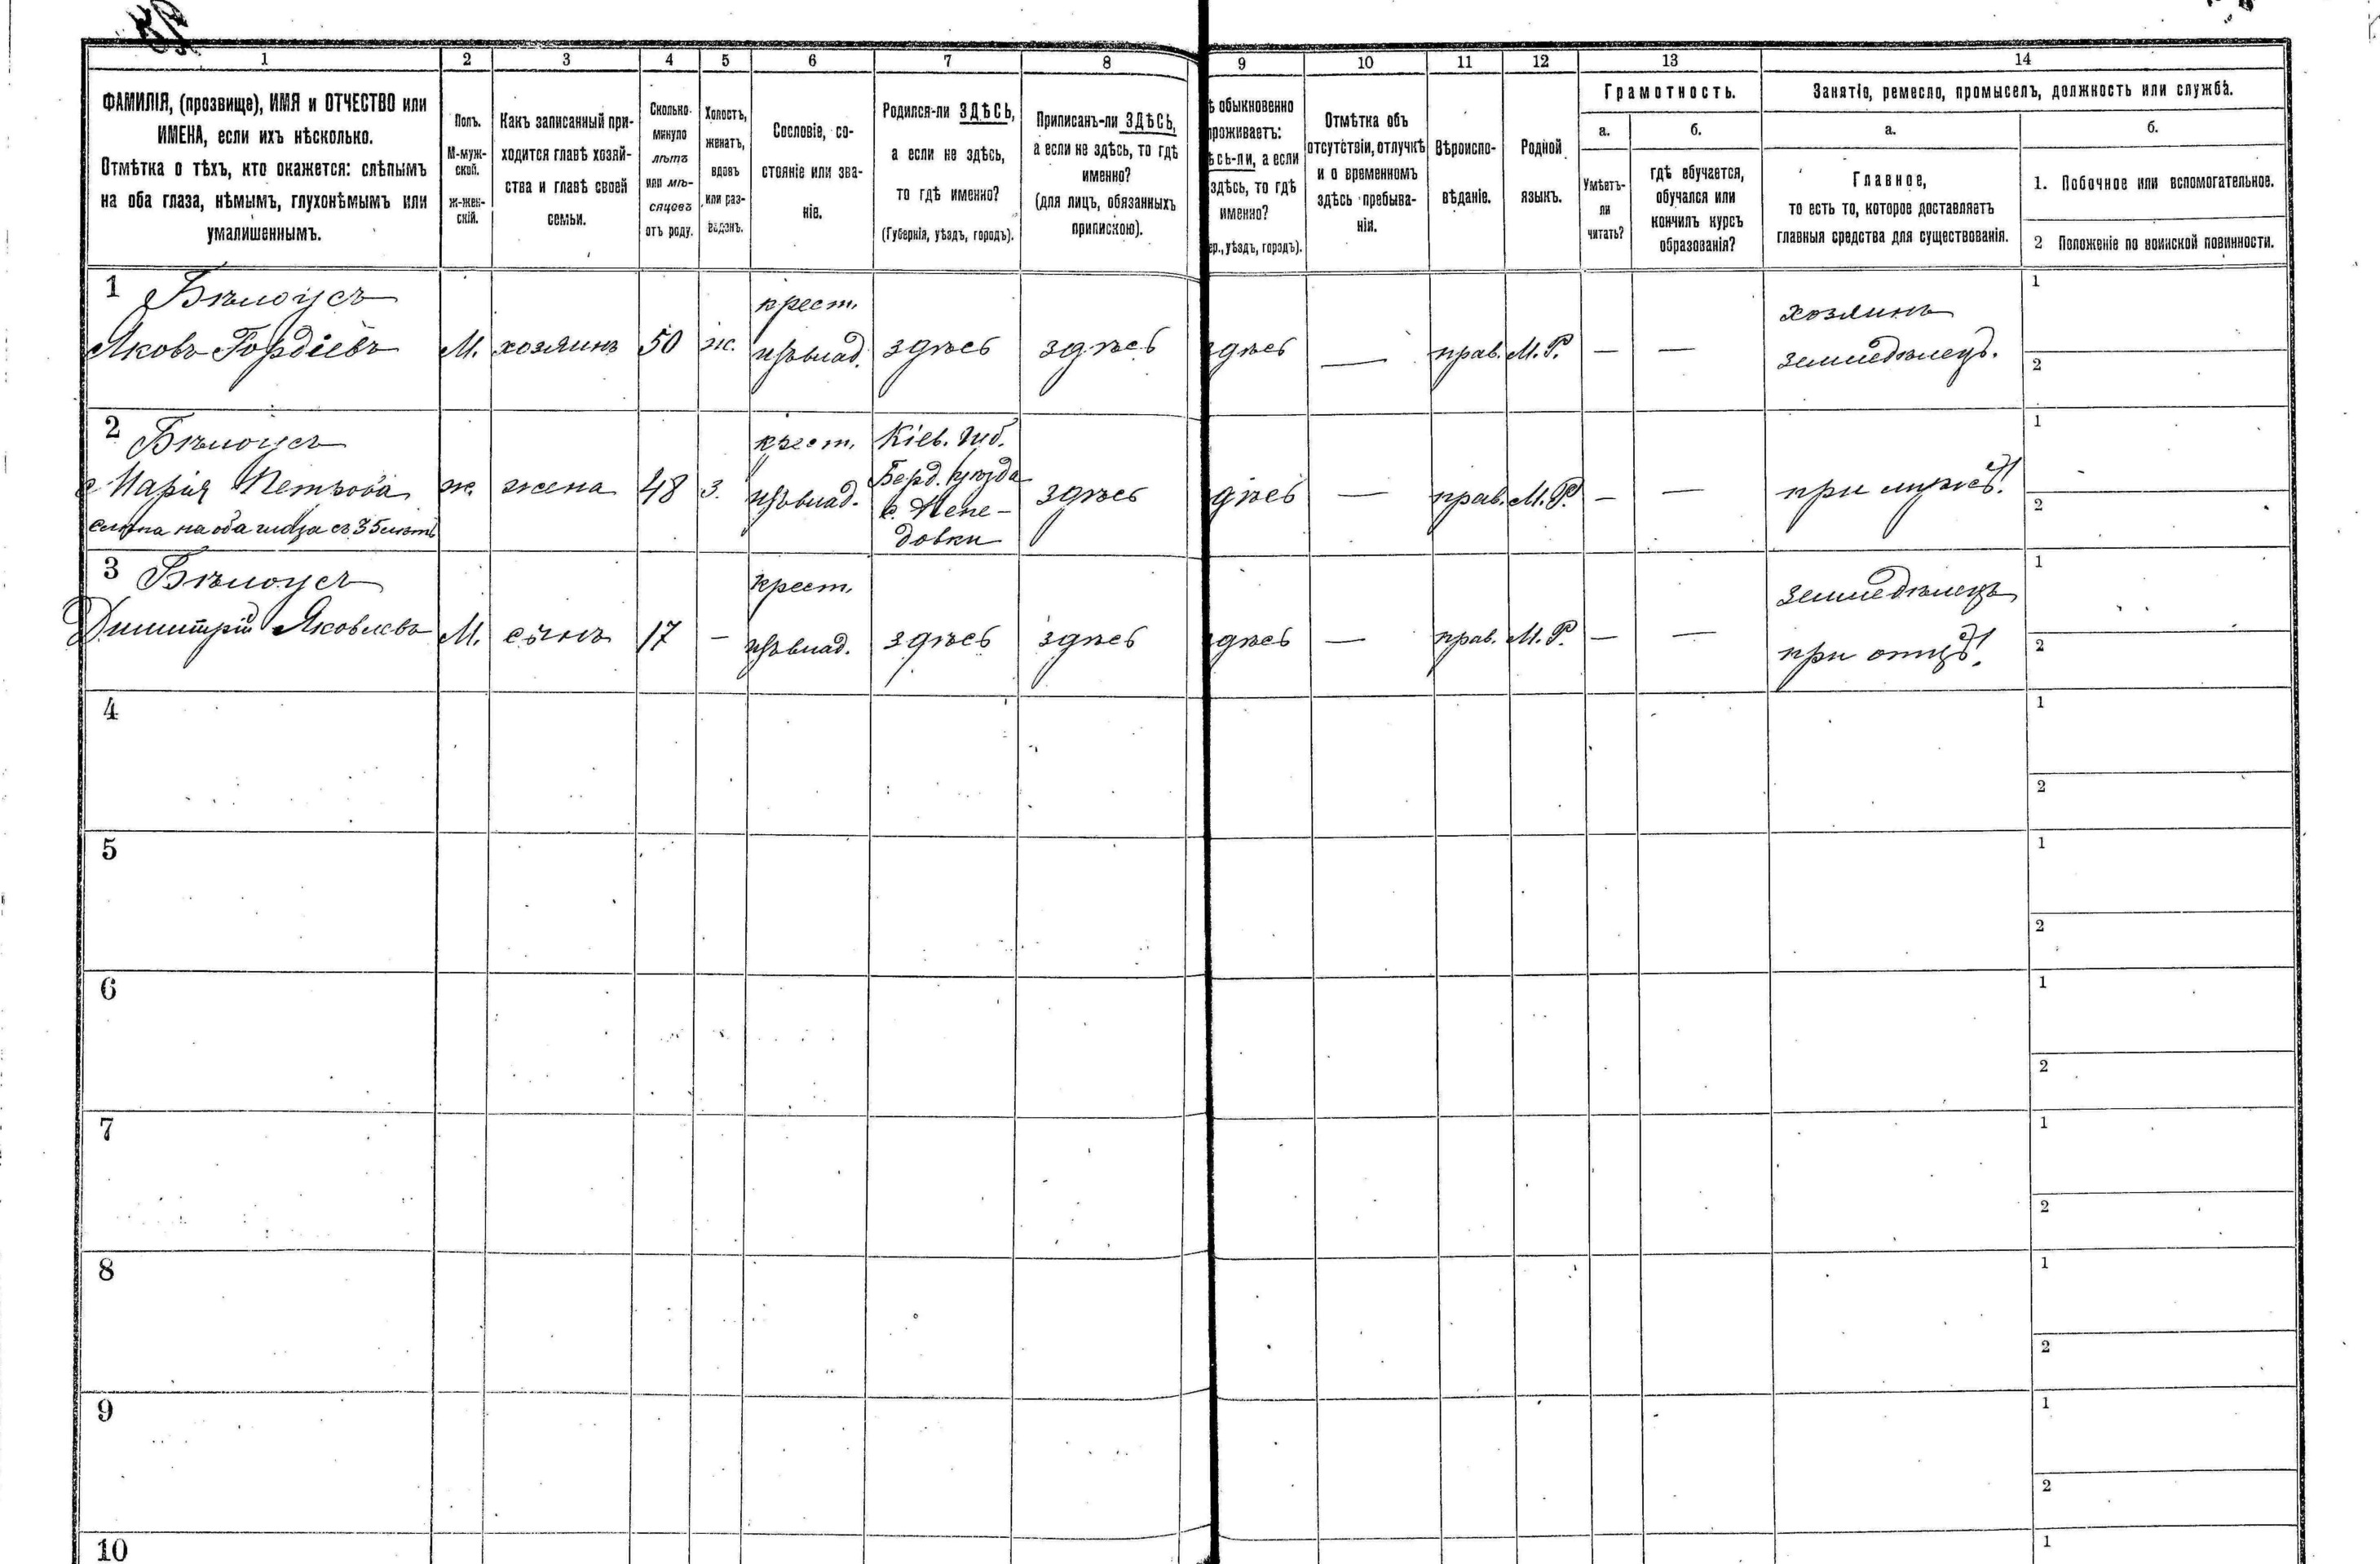 1 2 3 4 5 6 7 8 9 10 11 12 13 14
ФАМИЛІЯ, (прозвище), ИМЯ и ОТЧЕСТВО или
ИМЕНА, если ихъ нѣсколько.
Отмѣтка о тѣхъ, кто окажется: слѣпымъ
на оба глаза, нѣмымъ, глухонѣмымъ или
умалишеннымъ.
Полъ.
М-муж-
ской.
ж-жен-
скій.
Какъ записанный при-
ходится главѣ хозяй-
ства и главѣ своей
семьи.
Сколько
минуло
лѣтъ
или мѣ-
сяцевъ
отъ роду.
Холостъ,
женатъ,
вдовъ
или раз-
веденъ.
Сословіе, со-
стояніе или зва-
ніе.
Родился-ли ЗДѢСЬ,
а если не здѣсь,
то гдѣ именно?
(Губернія, уѣздъ, городъ).
Приписанъ-ли ЗДѢСЬ,
а если не здѣсь, то гдѣ
именно?
(для лицъ, обязанныхъ
припискою).
ѣ обыкновенно
роживаетъ:
ѣсь-ли, а если
здѣсь, то гдѣ
именно?
ер., уѣздъ, городъ).
Отмѣтка объ
отсутствіи, отлучкѣ
и о временномъ
здѣсь пребыва-
ніи.
Вѣроиспо-
вѣданіе.
Родной
языкъ.
Грамотность.
а.
Умѣетъ-
ли
читать?
б.
гдѣ обучается,
обучался или
кончилъ курсъ
образованія?
Занятіе, ремесло, промыселъ, должность или служба.
а.
Главное,
то есть то, которое доставляетъ
главныя средства для существованія.
б.
1. Побочное или вспомогательное.
2 Положеніе по воинской повинности.
1 Бѣлоусъ крест. хозяинъ 1
Яковъ Гордіевъ М. хозяинъ 50 ж. здѣсь здѣсь дѣсь — прав. М.Р. — — земледѣлецъ. 2
2 Бѣлоусъ крест. Кіев. Губ. 1
Марія Петрова ж. жена 48 з. Берд. уѣзда здѣсь дѣсь — прав. М.Р. — — при мужѣ! 2
слѣпа на оба глаза съ 35 лѣтъ
довки
3 Бѣлоусъ крест. земледѣлецъ 1
Димитрій Яковлевъ М. сынъ 17 — здѣсь здѣсь дѣсь — прав. М.Р. — — при отцѣ! 2
4 1
2
5 1
2
6 1
2
7 1
2
8 1
2
9 1
2
10 1